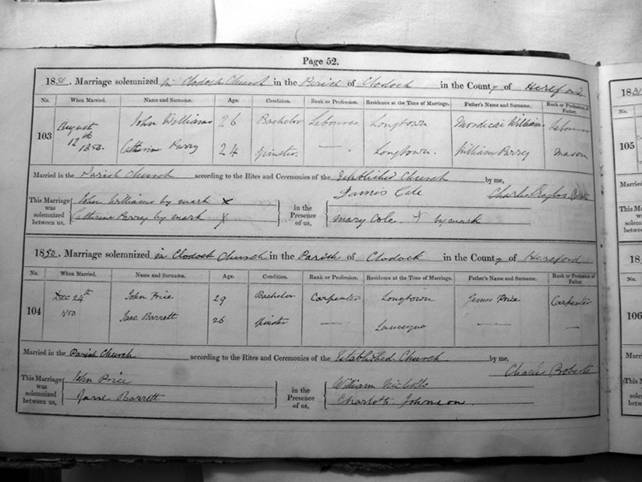 Page 52.
1850. Marriage solemnized in Clodock Church in the Parish of Clodock in the County of Hereford
No. When Married. Name and Surname. Age. Condition. Rank or Profession. Residence at the Time of Marriage. Father's Name and Surname. Rank or Profession of Father.
103 August 12th 1850. John Williams 26 Bachelor Labourer Longtown Mordecai Williams Labourer
Catherine Parry 24 Spinster — Longtown. William Parry Mason
Married in the Parish Church according to the Rites and Ceremonies of the Established Church by me,
This Marriage was solemnized between us, John Williams by mark x in the Presence of us, James Cole Charles
Catherine Parry by mark x Mary Cole + by mark
1850. Marriage solemnized in Clodock Church in the Parish of Clodock in the County of Hereford
No. When Married. Name and Surname. Age. Condition. Rank or Profession. Residence at the Time of Marriage. Father's Name and Surname. Rank or Profession of Father.
104 Dec 24th 1850 John Price 29 Bachelor Carpenter Longtown James Price Carpenter
Jane Barrett 26 Spinster — — —
Married in the Parish Church according to the Rites and Ceremonies of the Established Church by me,
This Marriage was solemnized between us, John Price in the Presence of us, William Charles
Jane Barrett Charlotte Johnson
18
No.
105
106